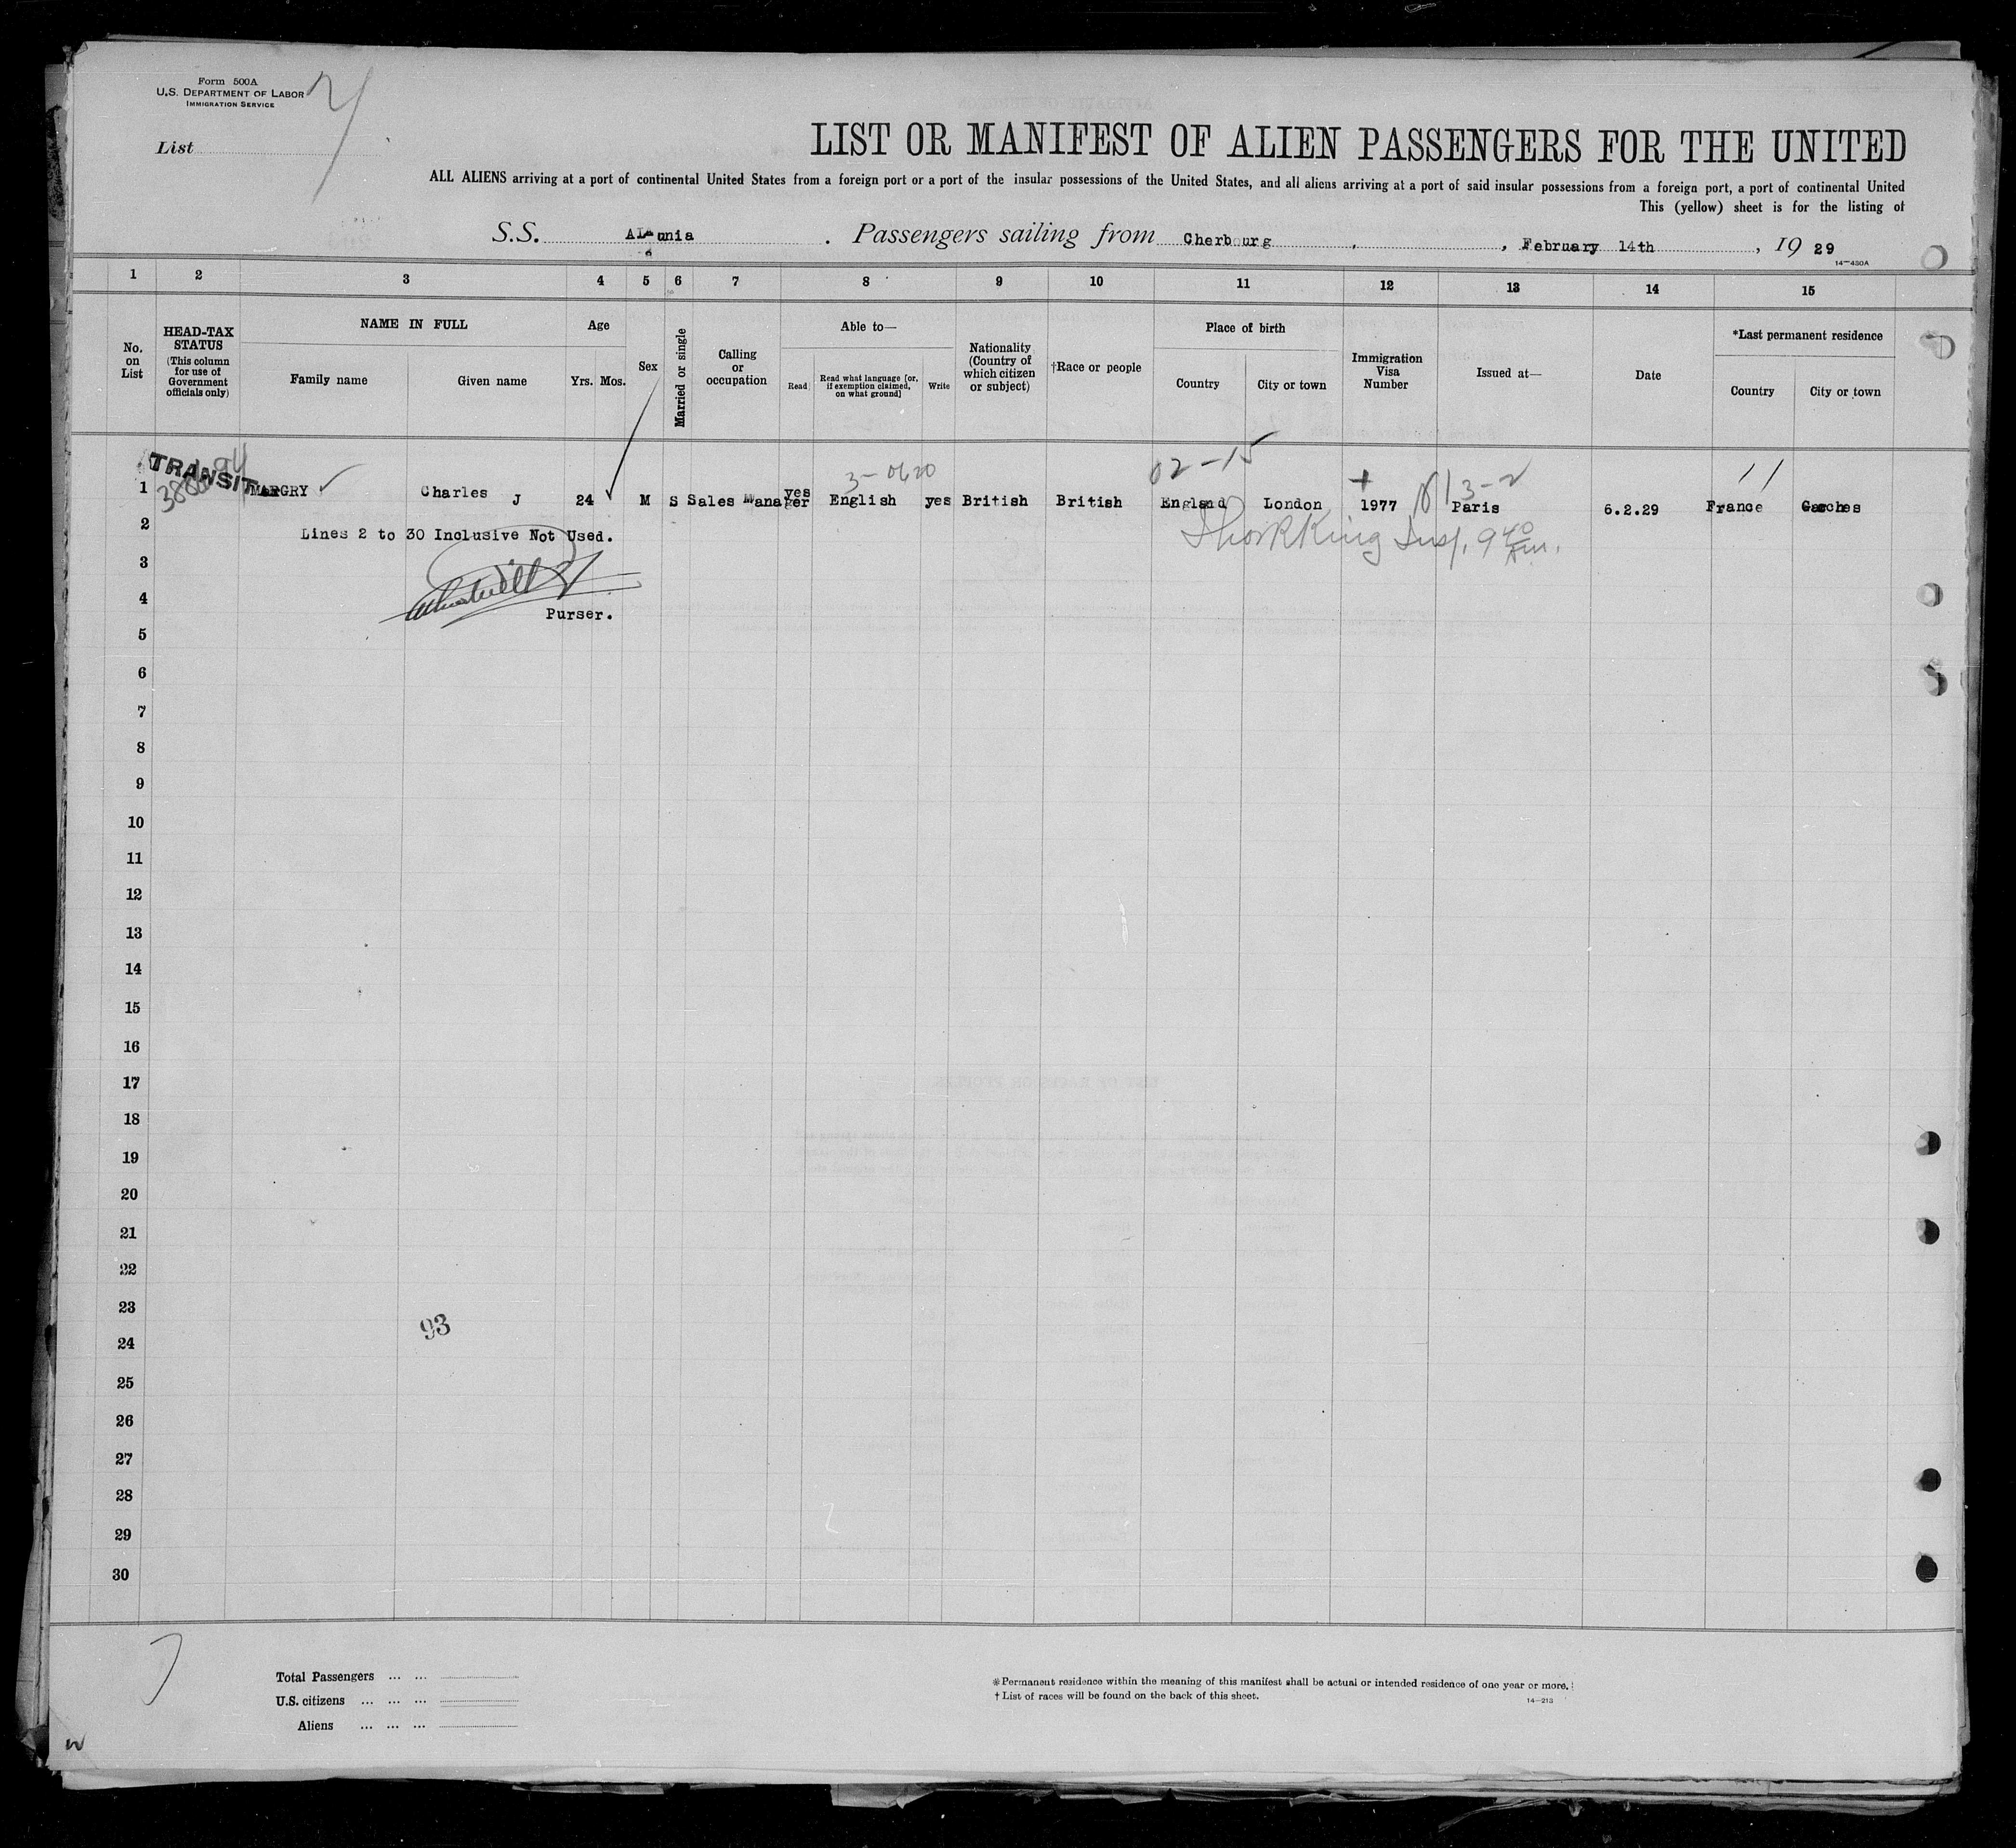 Form 500A
U.S. DEPARTMENT OF LABOR
IMMIGRATION SERVICE
List
LIST OR MANIFEST OF ALIEN PASSENGERS FOR THE UNITED
ALL ALIENS arriving at a port of continental United States from a foreign port or a port of the insular possessions of the United States, and all aliens arriving at a port of said insular possessions from a foreign port, a port of continental United
This (yellow) sheet is for the listing of
S.S. Passengers sailing from Cherbourg, February 14th, 19 29
14—430A
1 2 3 4 5 6 7 8 9 10 11 12 13 14 15
No. on List
HEAD-TAX STATUS (This column for use of Government officials only)
NAME IN FULL
Family name Given name
Age
Yrs. Mos.
Sex
Married or single
Calling or occupation
Able to—
Read Read what language [or, if exemption claimed, on what ground] Write
Nationality (Country of which citizen or subject)
†Race or people
Place of birth
Country City or town
Immigration Visa Number
Issued at—
Date
*Last permanent residence
Country City or town
TRANSIT
02-15
3-0620
3-2
11
1 MARGRY Charles J 24 M S Sales Manager yes English yes British British England London 1977 Paris 6.2.29 France Garches
2 Lines 2 to 30 Inclusive Not Used.
Insp. 9 40 am.
3
4
Purser.
5
6
7
8
9
10
11
12
13
14
15
16
17
18
19
20
21
22
23
93
24
25
26
27
28
29
30
Total Passengers ... ...
U.S. citizens ... ... ...
Aliens ... ... ...
*Permanent residence within the meaning of this manifest shall be actual or intended residence of one year or more.
†List of races will be found on the back of this sheet.
14—213